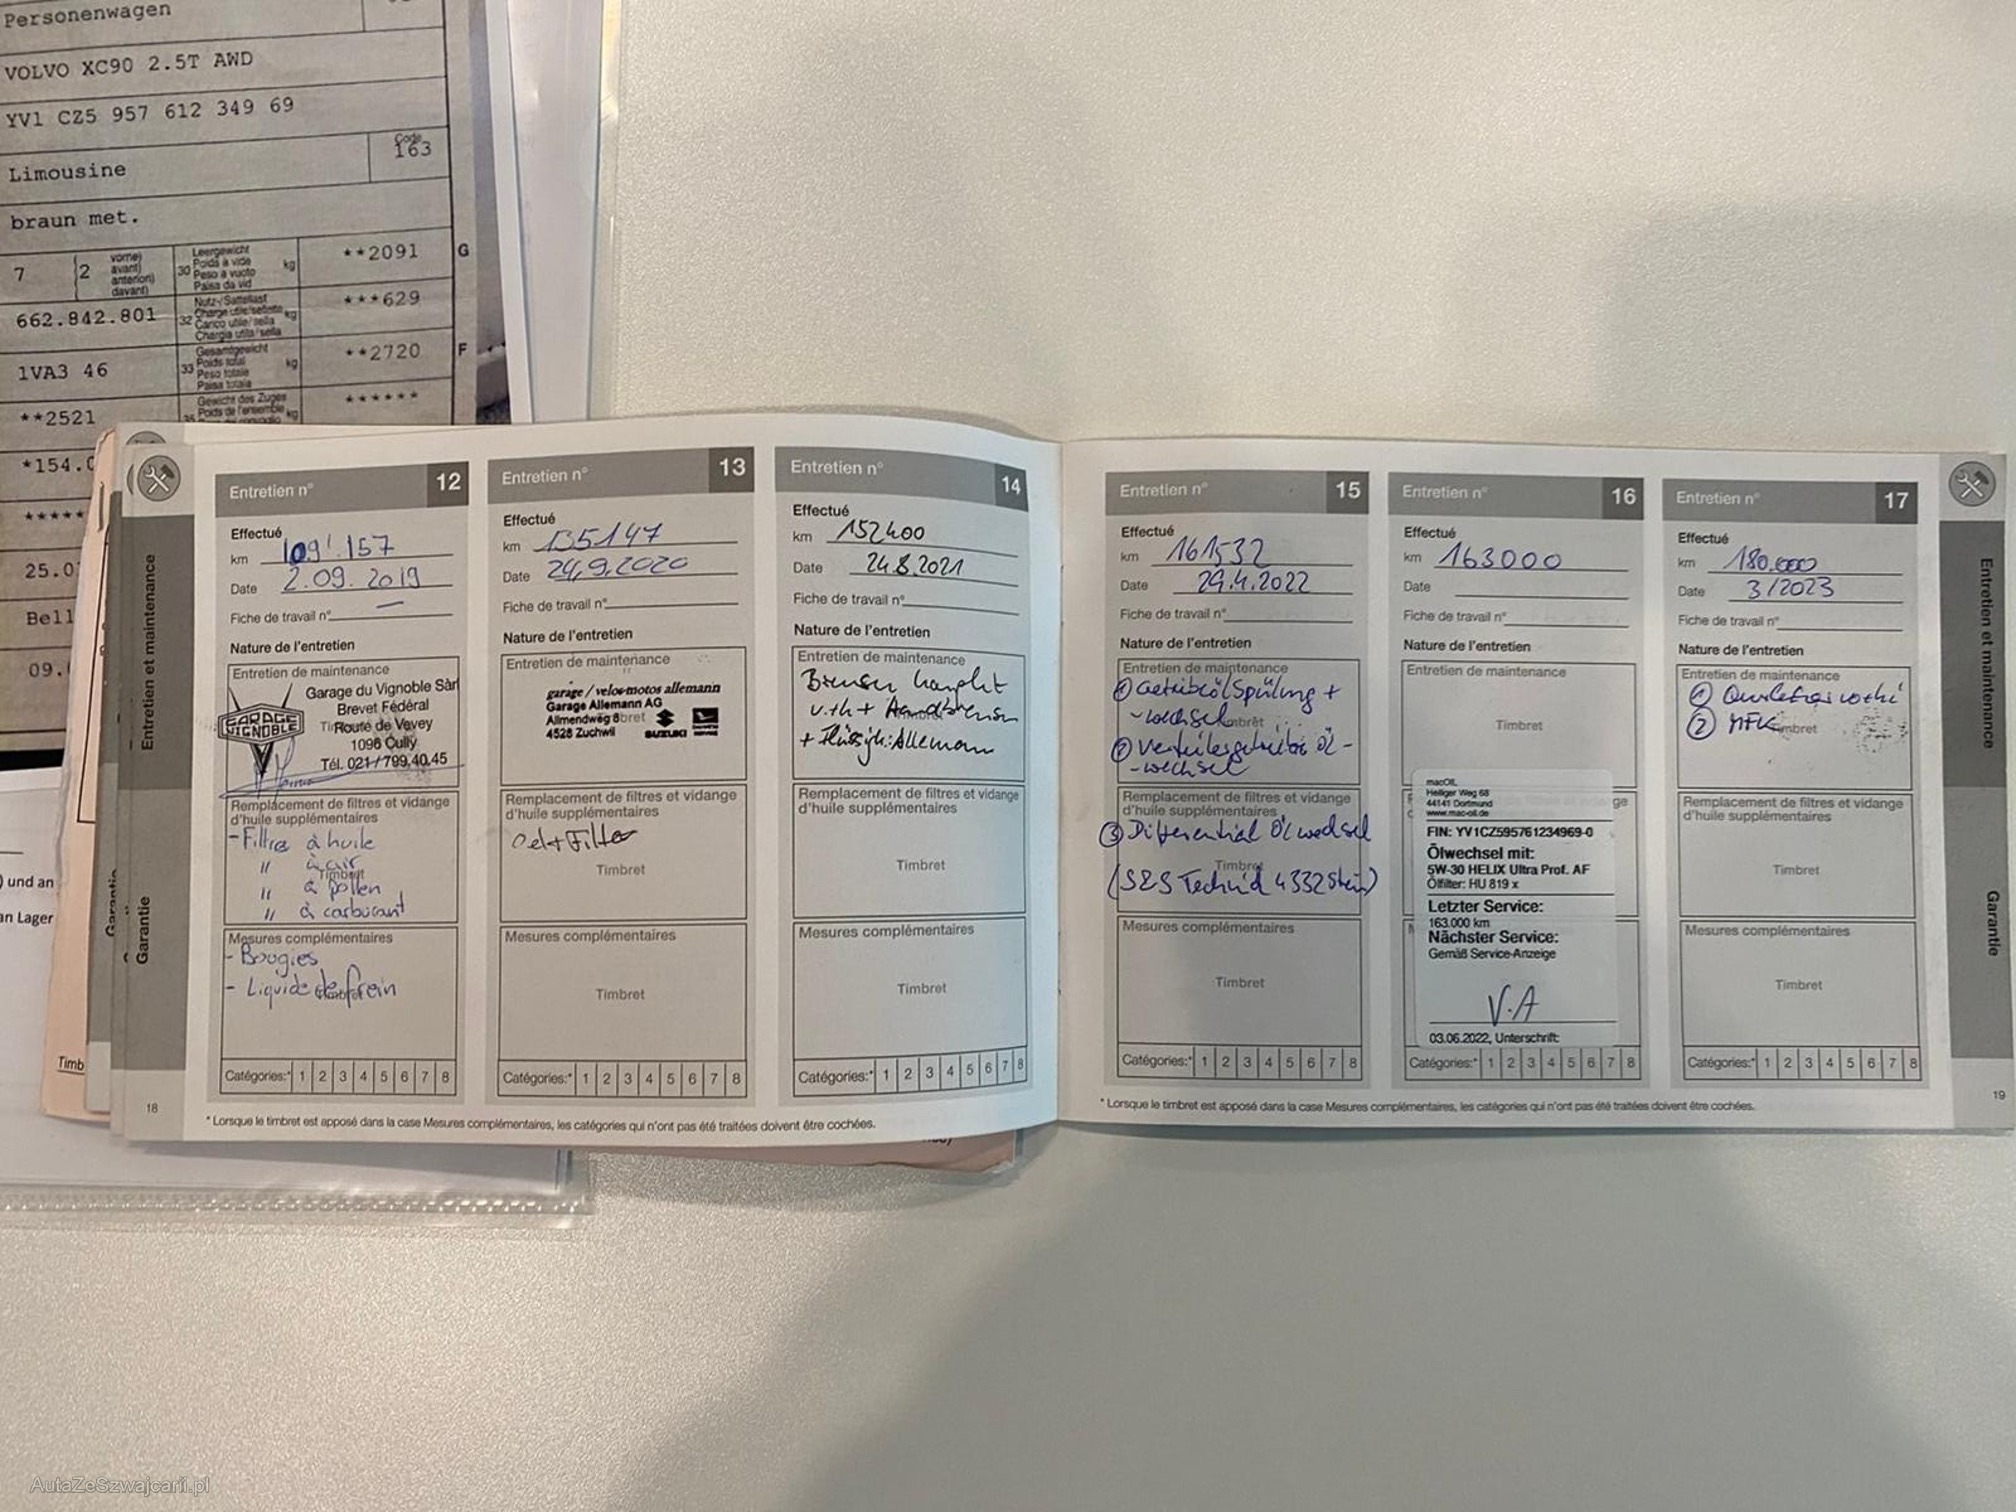 Personenwagen
VOLVO XC90 2.5T AWD
YV1 CZ5 957 612 349 69
Code
163
Limousine
braun met.
7
2
vorne)
avant)
anteriori)
davant)
30
Leergewicht
Poids à vide
Peso a vuoto
Paisa da vid
kg
**2091
G
662.842.801
32
Nutz-/Sattellast
Charge utile/sellette
Carico utile/sella
Chargia utila/sella
kg
***629
1VA3 46
33
Gesamtgewicht
Poids total
Peso totale
Paisa totala
kg
**2720
F
**2521
Gewicht des Zuges
Poids de l'ensemble
kg
******
*154.0
*****
25.0
Bell
09.
) und an
an Lager
Timb
Entretien et maintenance
Garantie
Garantie
Entretien n° 12
Effectué
km 109'.157
Date 2.09.2019
Fiche de travail n° —
Nature de l'entretien
Entretien de maintenance
GARAGE
VIGNOBLE
Garage du Vignoble Sàrl
Brevet Fédéral
Route de Vevey
1096 Cully
Tél. 021 / 799.40.45
Remplacement de filtres et vidange
d'huile supplémentaires
- Filtres à huile
" à air
Timbret
" à pollen
" à carburant
Mesures complémentaires
- Bougies
- Liquide de frein
Timbret
Catégories:* 1 2 3 4 5 6 7 8
Entretien n° 13
Effectué
km 135147
Date 24.9.2020
Fiche de travail n°
Nature de l'entretien
Entretien de maintenance
garage / velos-motos allemann
Garage Allemann AG
Allmendweg 8
4528 Zuchwil
SUZUKI
Remplacement de filtres et vidange
d'huile supplémentaires
Oel + Filter
Timbret
Mesures complémentaires
Timbret
Catégories:* 1 2 3 4 5 6 7 8
Entretien n° 14
Effectué
km 152400
Date 24.8.2021
Fiche de travail n°
Nature de l'entretien
Entretien de maintenance
Bremsen komplet
v.+h + Handbremsen
+ Flüssigk: Allemann
Remplacement de filtres et vidange
d'huile supplémentaires
Timbret
Mesures complémentaires
Timbret
Catégories:* 1 2 3 4 5 6 7 8
18
* Lorsque le timbret est apposé dans la case Mesures complémentaires, les catégories qui n'ont pas été traitées doivent être cochées.
Entretien n° 15
Effectué
km 161532
Date 29.4.2022
Fiche de travail n°
Nature de l'entretien
Entretien de maintenance
① Getriebeöl Spülung +
- wechsel
Timbret
② Verteilergetriebe Öl -
- wechsel
Remplacement de filtres et vidange
d'huile supplémentaires
③ Differential Öl wechsel
Timbret
(S&S Technid 4332 Stein)
Mesures complémentaires
Timbret
Catégories:* 1 2 3 4 5 6 7 8
Entretien n° 16
Effectué
km 163000
Date
Fiche de travail n°
Nature de l'entretien
Entretien de maintenance
Timbret
macOIL
Heiliger Weg 68
44141 Dortmund
www.mac-oil.de
ge
FIN: YV1CZ595761234969-0
Ölwechsel mit:
5W-30 HELIX Ultra Prof. AF
Ölfilter: HU 819 x
Letzter Service:
163.000 km
Nächster Service:
Gemäß Service-Anzeige
V.A
03.06.2022, Unterschrift:
Catégories:* 1 2 3 4 5 6 7 8
Entretien n° 17
Effectué
km 180.000
Date 3/2023
Fiche de travail n°
Nature de l'entretien
Entretien de maintenance
①
② MFK
Timbret
Remplacement de filtres et vidange
d'huile supplémentaires
Timbret
Mesures complémentaires
Timbret
Catégories:* 1 2 3 4 5 6 7 8
* Lorsque le timbret est apposé dans la case Mesures complémentaires, les catégories qui n'ont pas été traitées doivent être cochées.
19
Entretien et maintenance
Garantie
AutaZeSzwajcarii.pl